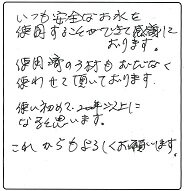 いつも安全なお水を
使用することができて感謝して
おります。
使用済のうわもおだなく
使わせて頂いております。
使い初めて、20年以上に
なると思います。
これからもよろしくお願いします。